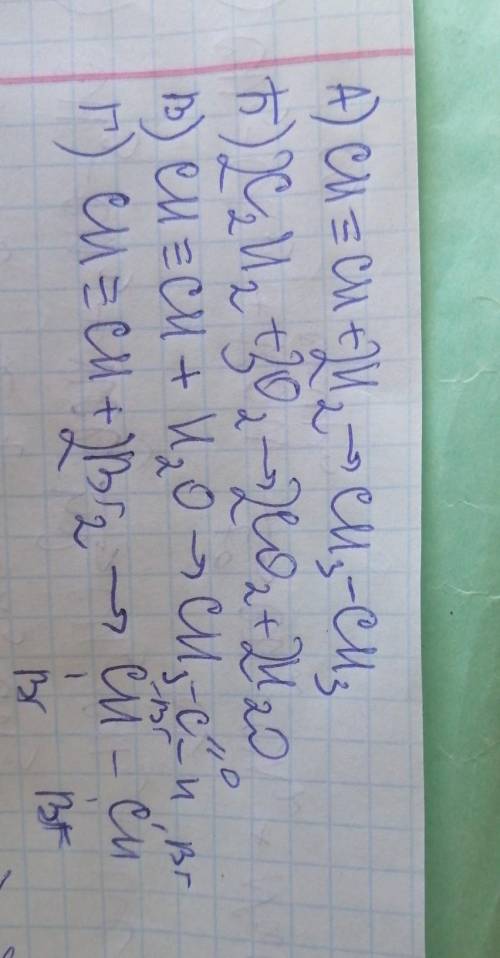 А) CH≡CH + 2H₂ → CH₃-CH₃
Б) 2C₂H₂ + 3O₂ → 2CO₂ + 2H₂O
В) CH≡CH + H₂O → CH₃-C=O
-H
Br Br
Г) CH≡CH + 2Br₂ → CH - CH
Br Br